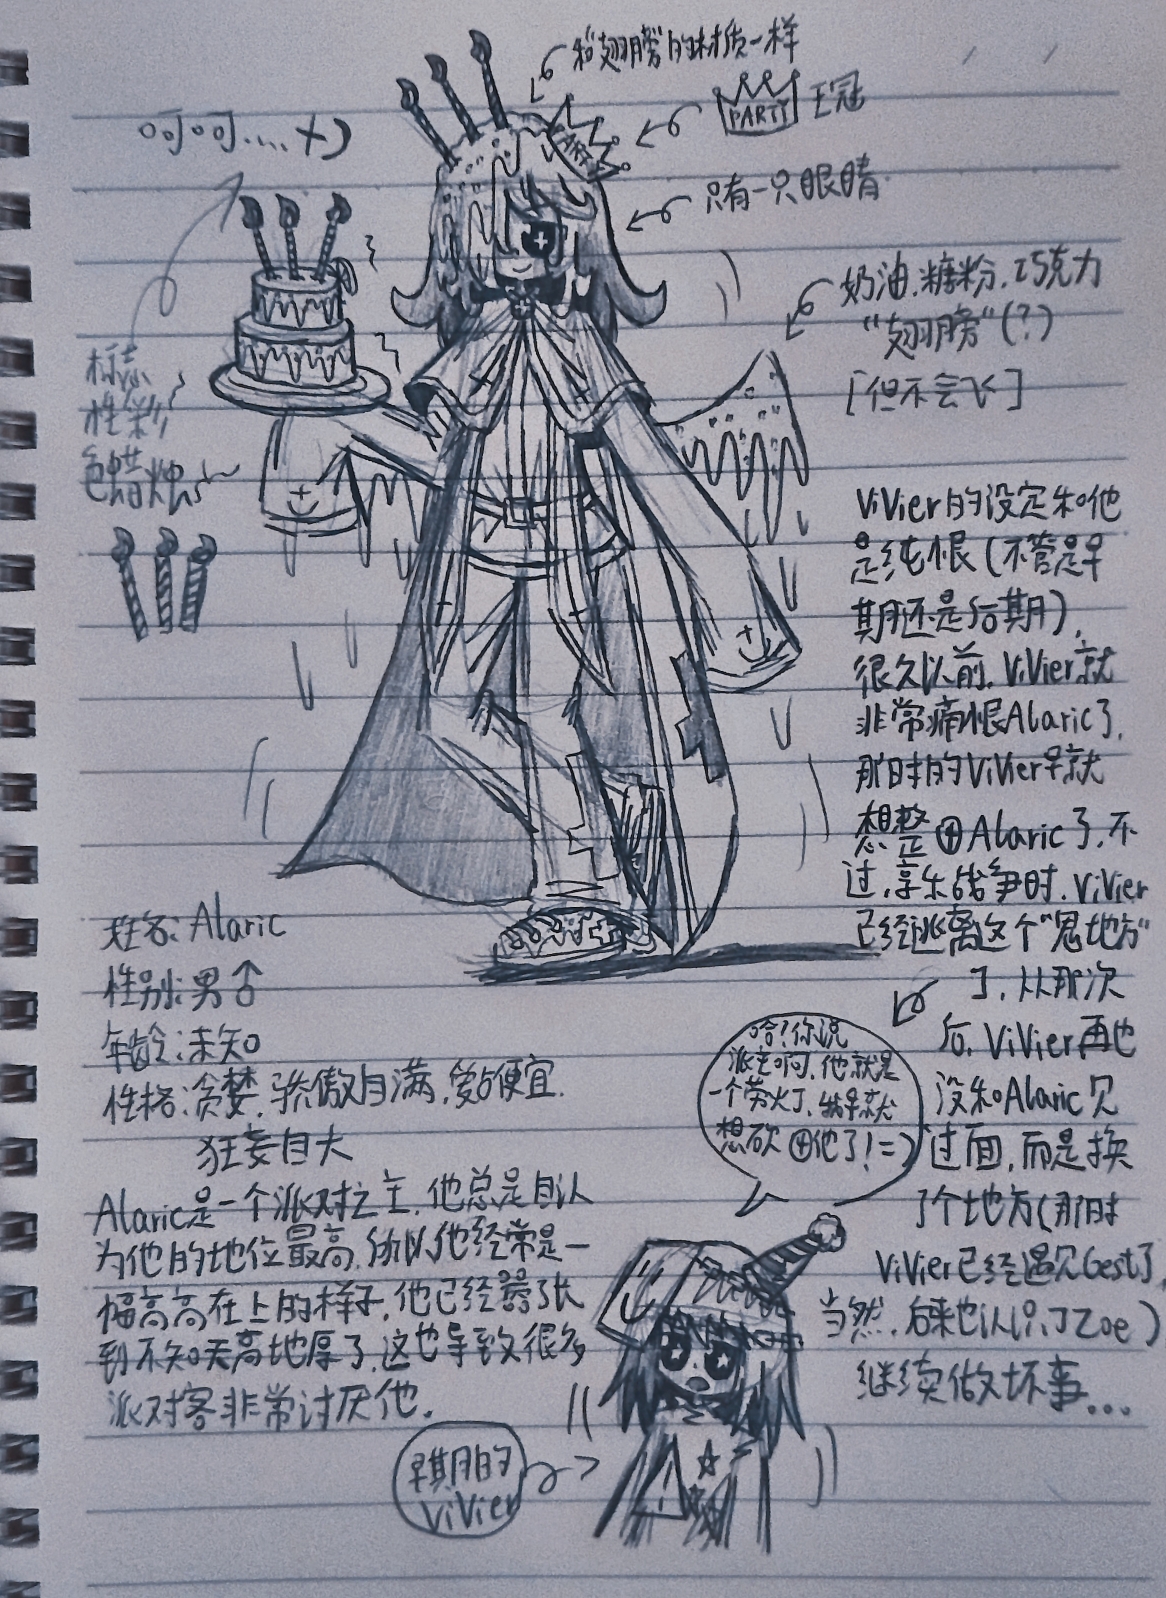 和"翅膀"的材质一样
PARTY 王冠
PARTY
呵呵....+)
只有一只眼睛
奶油.糖粉.巧克力
"翅膀"(?)
[但不会飞]
标志
性彩
色蜡烛
ViVier的设定和他
是纯恨(不管是早
期还是后期),
很久以前.ViVier就
非常痛恨Alaric了,
那时的ViVier早就
想整④Alaric了.不
过.享乐战争时.ViVier
已经逃离这个"鬼地方"
了.从那次
后.ViVier再也
没和Alaric见
过面.而是换
了个地方(那时
ViVier已经遇见Gest了
当然.后来也认识了Zoe)
继续做坏事...
姓名:Alaric
性别:男♂
年龄:未知
性格:贪婪.骄傲自满.爱占便宜.
狂妄自大
Alaric是一个派对之主.他总是自认
为他的地位最高.所以他经常是一
幅高高在上的样子.他已经嚣张
到不知天高地厚了.这也导致很多
派对客非常讨厌他.
哈?你说
派主啊.他就是
一个劳火丁.我早就
想砍④他了!=)
早期的
ViVier